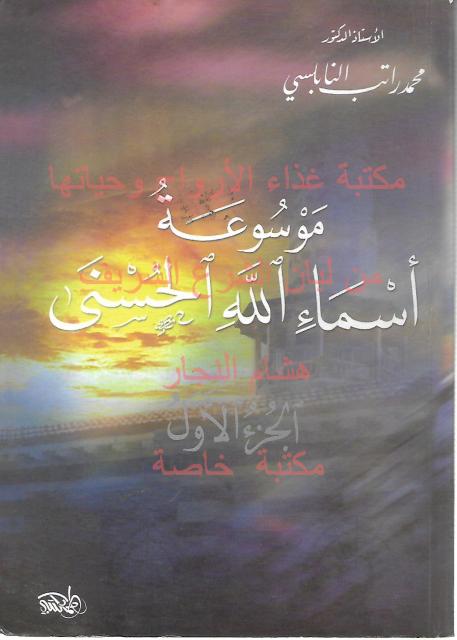 الأستاذ الدكتور
محمد راتب النابلسي
مكتبة غذاء الأرواح وحياتها
مَوْسُوعَةُ
من لبنان
أَسْمَاءِ اللهِ الْحُسْنَى
هشام النجار
الْجُزْءُ الْأَوَّلُ
مكتبة خاصة